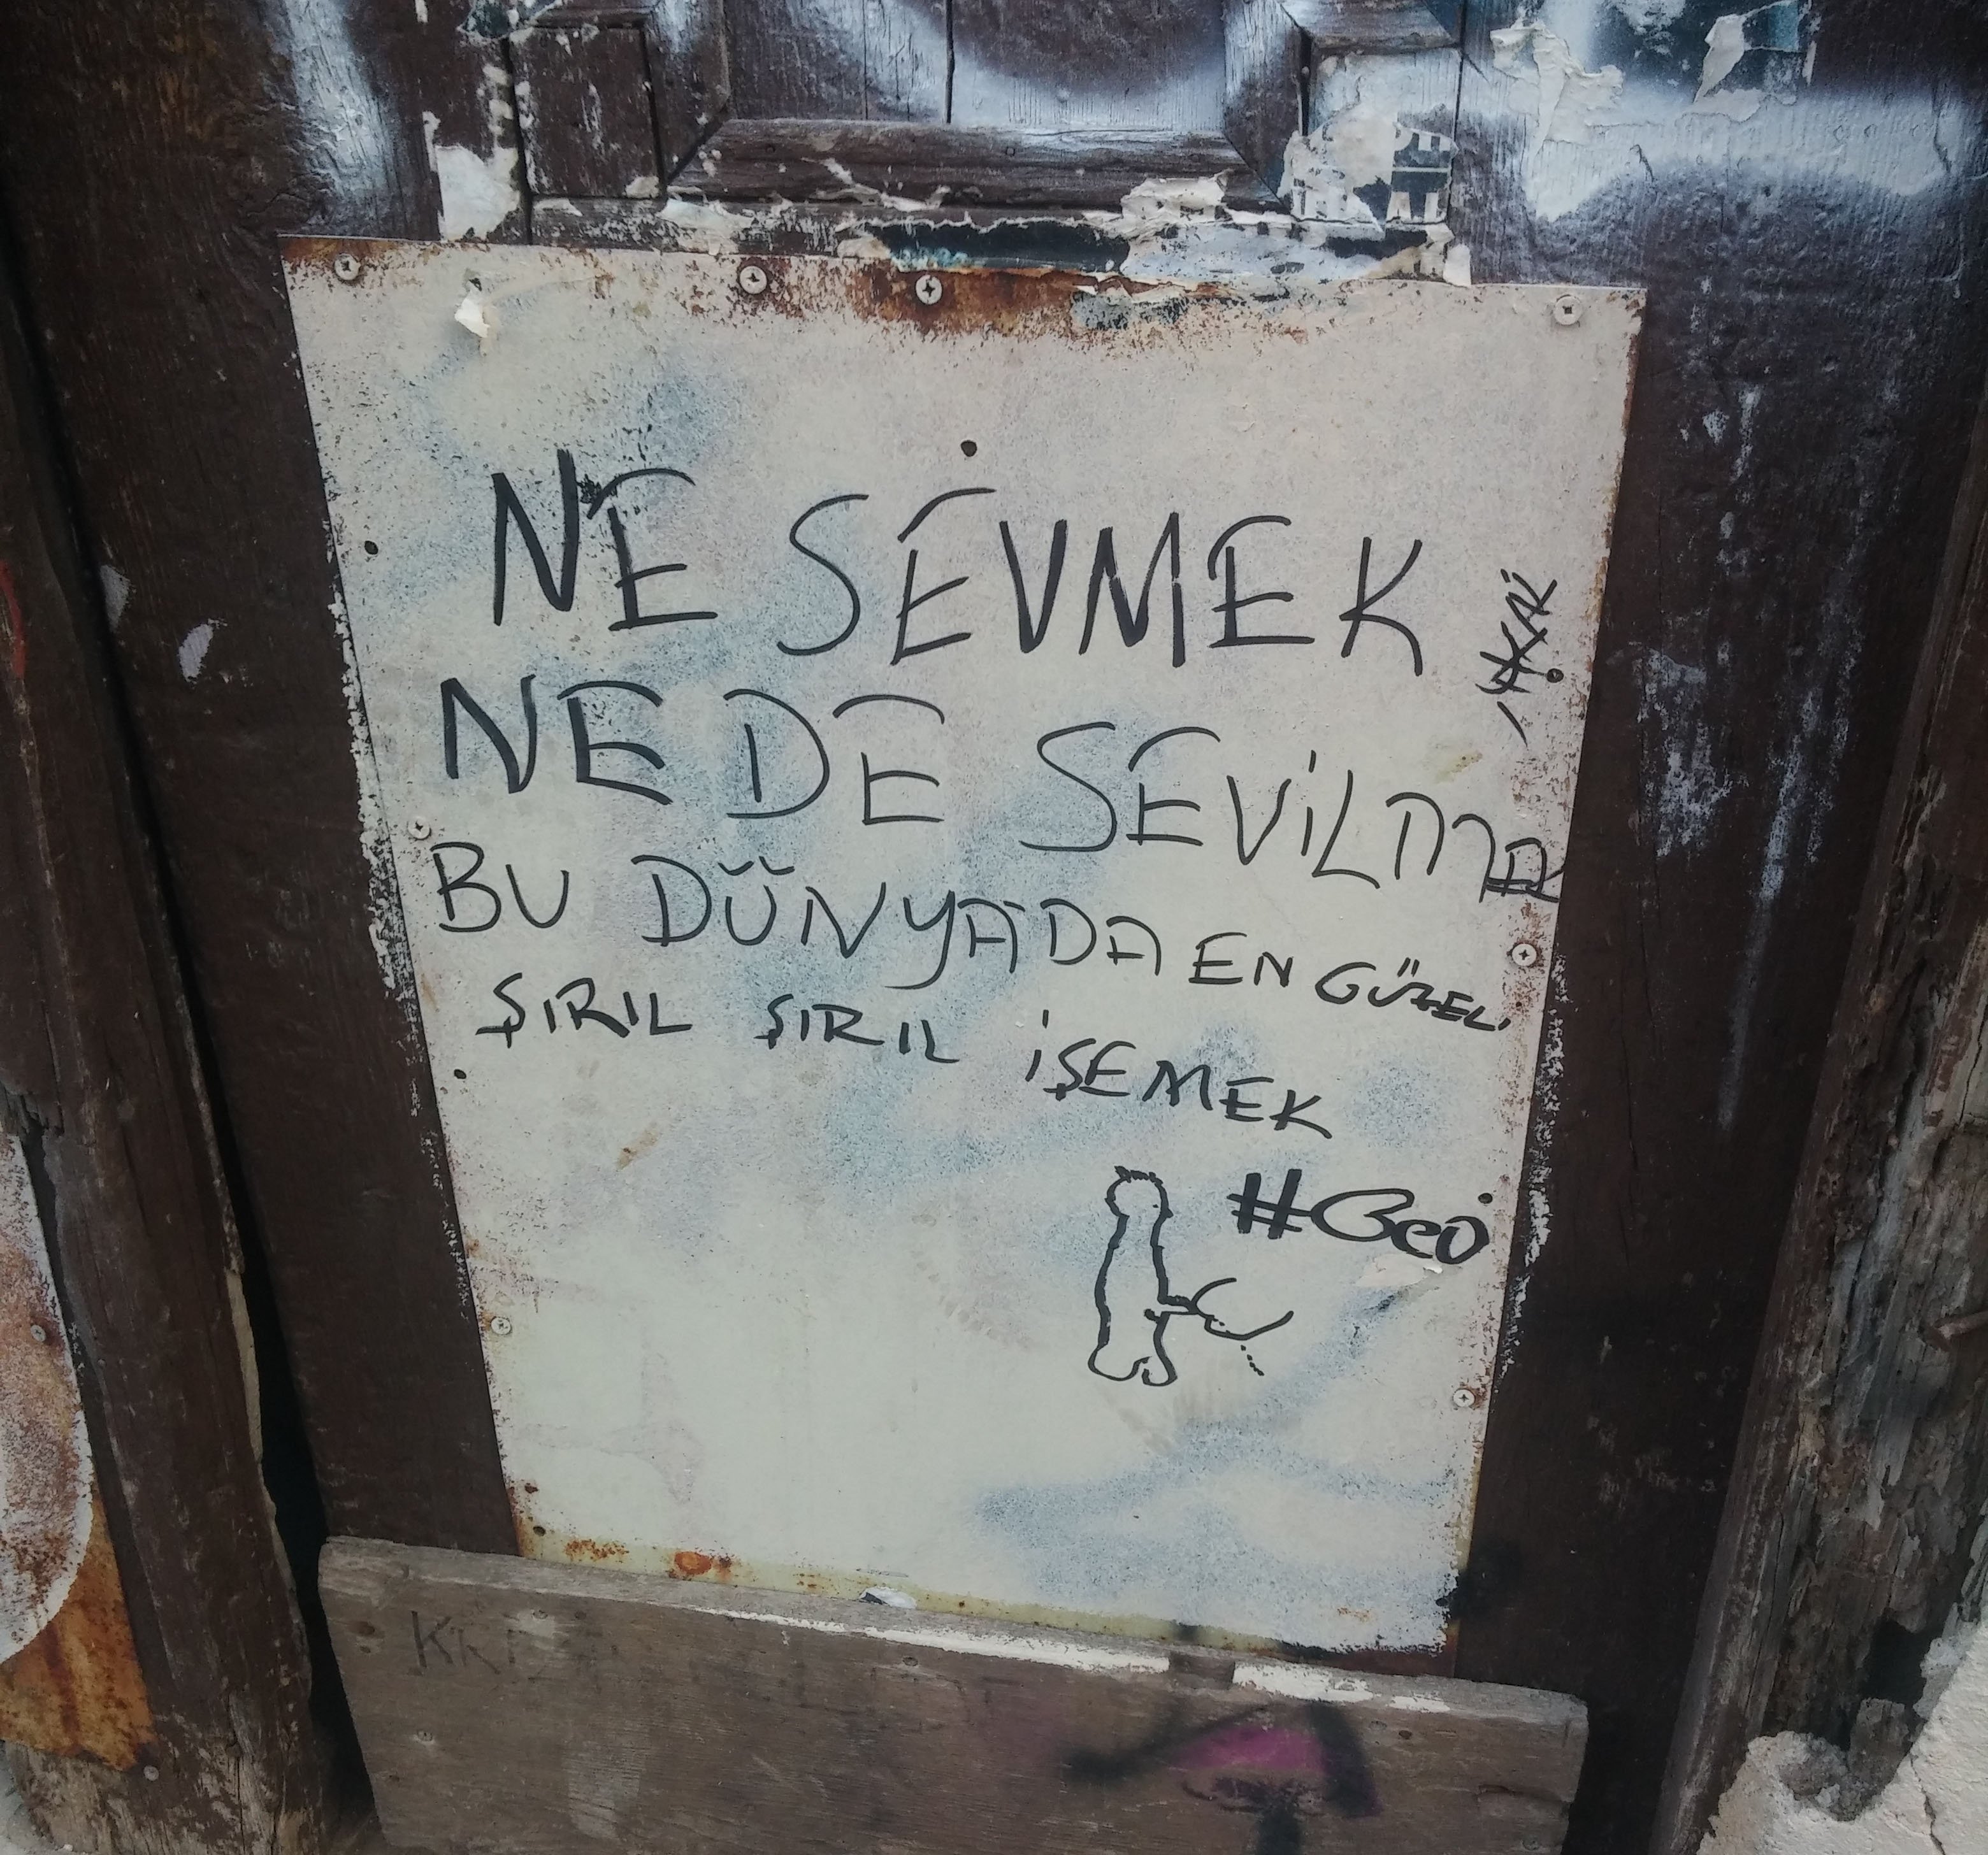 NE SEVMEK
NEDE SEVİLMEK
BU DÜNYADA EN GÜZELİ
ŞIRIL ŞIRIL İŞEMEK
#Geo